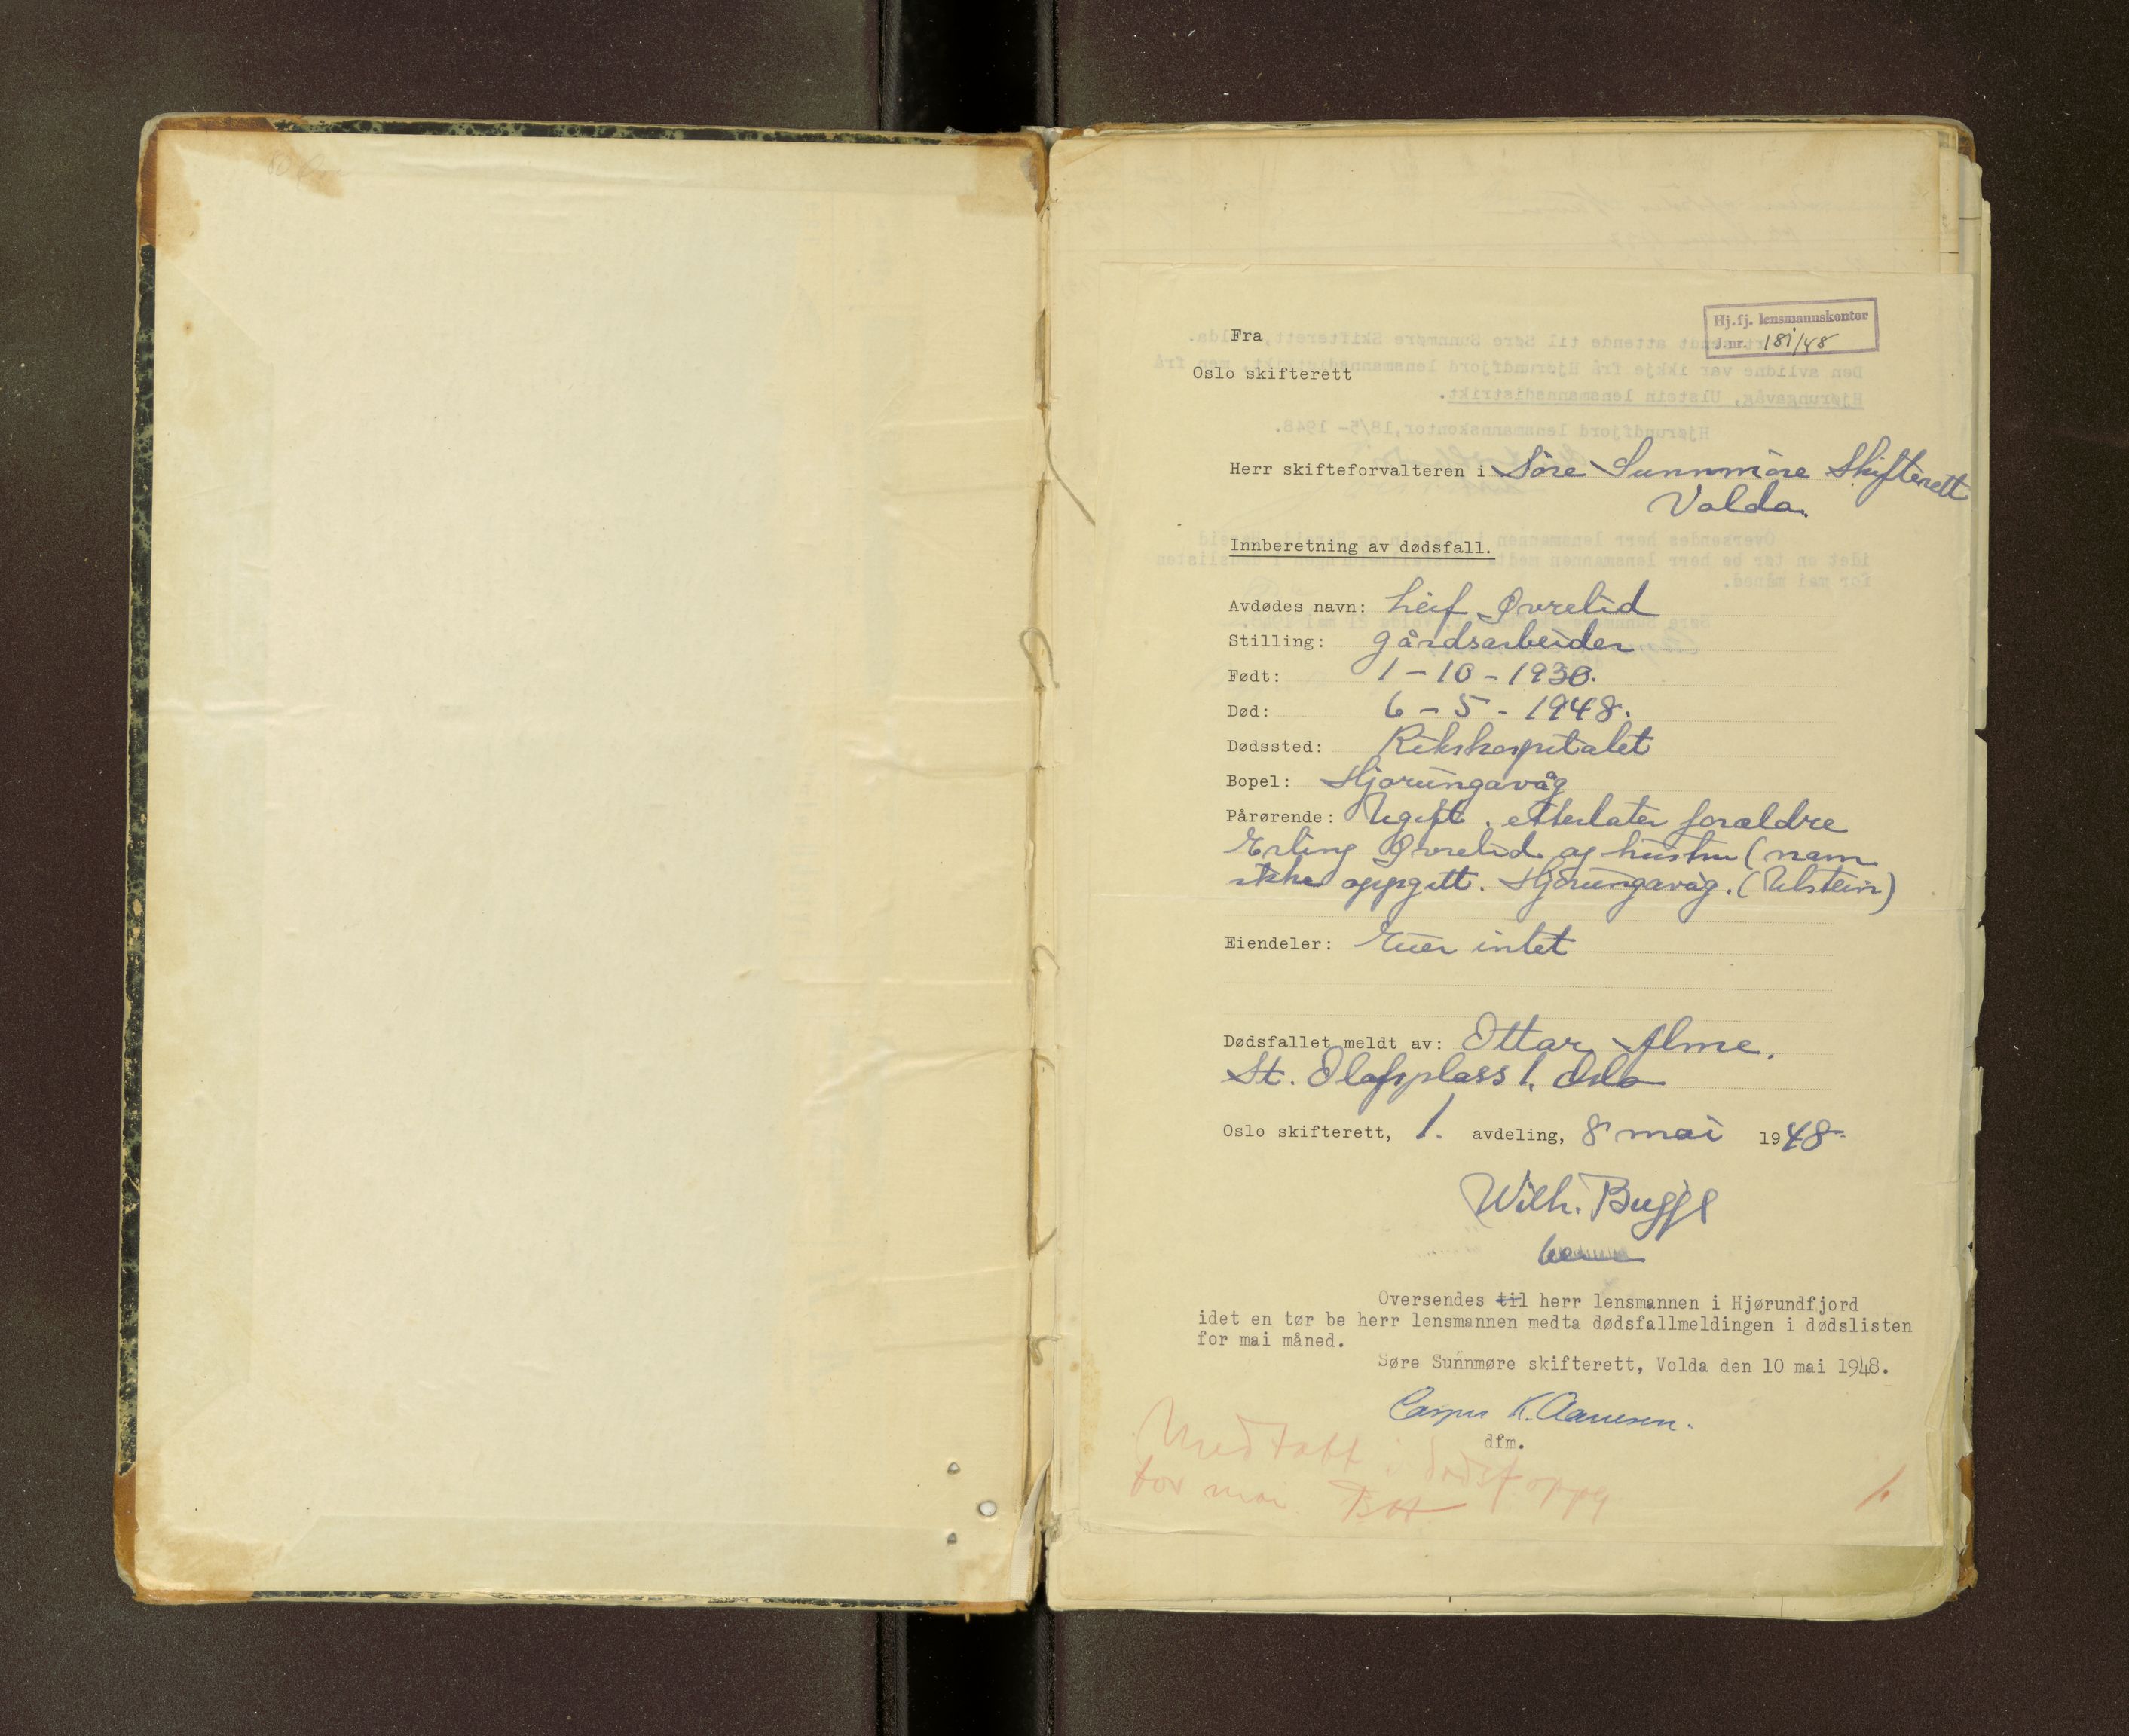 Hj.fj. lensmannskontor
J.nr. 181/48
Fra
Oslo skifterett
Herr skifteforvalteren i Söre Sunnmöre Skifterett
Volda.
Innberetning av dødsfall.
Avdødes navn: Leif Øvrelid
Stilling: gårdsarbeider
Født: 1-10-1930.
Død: 6-5-1948.
Dødssted: Rikshospitalet
Bopel: Hjorungavåg
Pårørende: Ugift. etterlater forældre
Erling Øvrelid og hustru (navn
ikke oppgitt. Hjorungavåg. (Ulstein)
Eiendeler: Eier intet
Dødsfallet meldt av: Ottar Alme.
St. Olafsplass 1. Oslo
Oslo skifterett, 1. avdeling, 8 mai 1948.
Wilh. Bugge
Oversendes til herr lensmannen i Hjørundfjord
idet en tør be herr lensmannen medta dødsfallmeldingen i dødslisten
for mai måned.
Søre Sunnmøre skifterett, Volda den 10 mai 1948.
Casper K. Aamesen.
dfm.
Medtatt i dødsfoppg
for mai